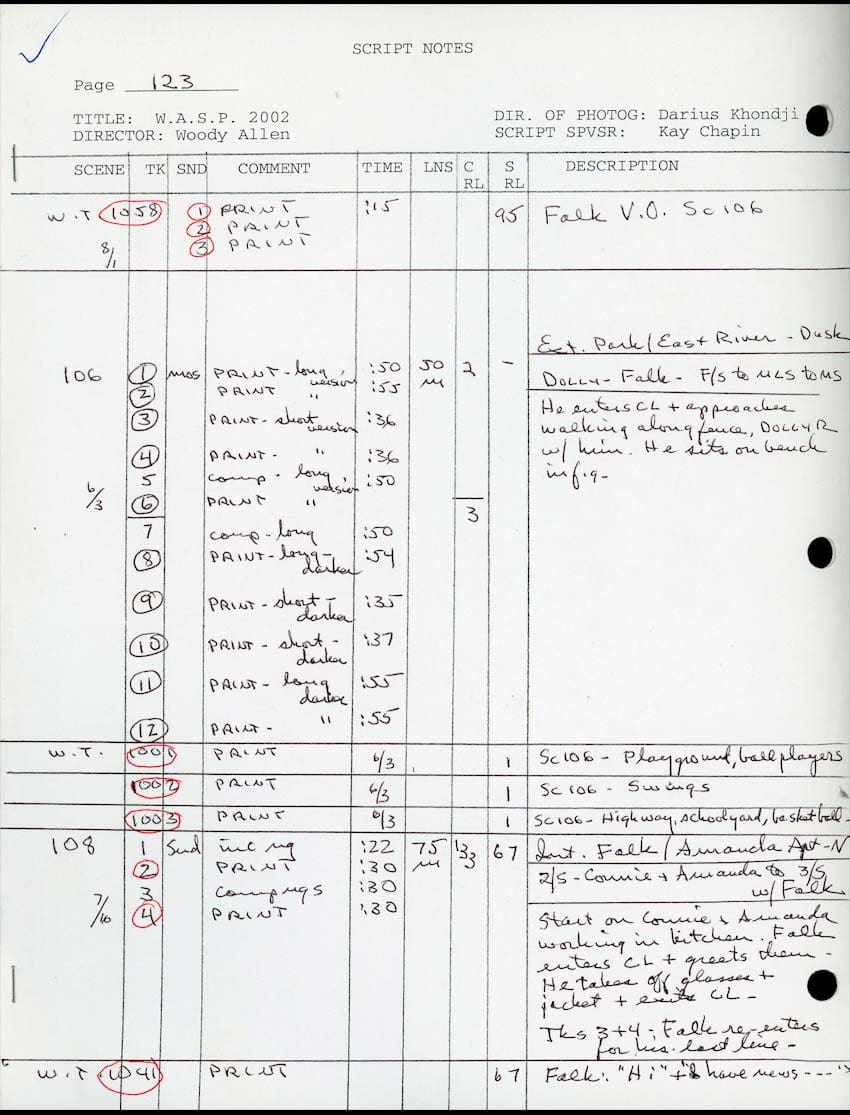 SCRIPT NOTES
Page 123
TITLE: W.A.S.P. 2002
DIRECTOR: Woody Allen
DIR. OF PHOTOG: Darius Khondji
SCRIPT SPVSR: Kay Chapin
SCENE TK SND COMMENT TIME LNS C RL S RL DESCRIPTION
W.T. 1058 1 PRINT :15 95 Falk V.O. Sc106
2 PRINT
8/1 3 PRINT
Ext. Park/East River - Dusk
106 1 MOS PRINT - long version :50 50 M 2 - DOLLY - Falk - F/S to MLS to MS
2 PRINT " :55
3 PRINT - short version :36
He enters CL + approaches
walking along fence, DOLLY R
w/ him. He sits on bench
in f.g.
4 PRINT - " :36
5 comp - long version :50
6/3 6 PRINT " 3
7 comp - long :50
8 PRINT - long - darker :54
9 PRINT - short - darker :35
10 PRINT - short - darker :37
11 PRINT - long darker :55
12 PRINT - " :55
W.T. 1001 PRINT 6/3 1 Sc106 - Playground, ballplayers
1002 PRINT 6/3 1 Sc106 - Swings
1003 PRINT 6/3 1 Sc106 - Highway, schoolyard, basketball -
108 1 Snd inc ng :22 75 M 3 67 Int. Falk/Amanda Apt - N
2 PRINT :30
2/S - Connie + Amanda to 3/S
w/ Falk
3 comp ngs :30
7/16 4 PRINT :30
Start on Connie + Amanda
working in kitchen. Falk
enters CL + greets them -
He takes off glasses +
jacket + exits CL -
Tks 3+4 - Falk re-enters
for his last line -
W.T. 1041 PRINT 67 Falk: "Hi" + "I have news ---"